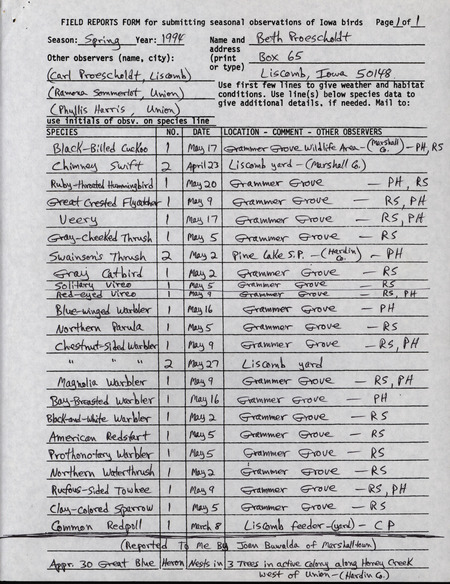 FIELD REPORTS FORM for submitting seasonal observations of Iowa birds Page 1 of 1
Season: Spring Year: 1994 Name and Beth Proescholdt
address
Other observers (name, city): (print Box 65
or type)
(Carl Proescholdt, Liscomb) Liscomb, Iowa 50148
(Ramona Sommerlot, Union) Use first few lines to give weather and habitat
conditions. Use line(s) below species data to
(Phyllis Harris, Union) give additional details, if needed. Mail to:
use initials of obsv. on species line
SPECIES NO. DATE LOCATION - COMMENT - OTHER OBSERVERS
Black-Billed Cuckoo 1 May 17 Grammer Grove Wildlife Area - (Marshall Co.) - PH, RS
Chimney Swift 2 April 23 Liscomb yard - (Marshall Co.)
Ruby-throated Hummingbird 1 May 20 Grammer Grove - PH, RS
Great Crested Flycatcher 1 May 9 Grammer Grove - RS, PH
Veery 1 May 17 Grammer Grove - RS, PH
Gray-Cheeked Thrush 1 May 5 Grammer Grove - RS
Swainson's Thrush 2 May 2 Pine Lake S.P. - (Hardin Co.) - PH
Gray Catbird 1 May 2 Grammer Grove - RS
Solitary Vireo 1 May 5 Grammer Grove - RS
Red-eyed Vireo 1 May 9 Grammer Grove - RS, PH
Blue-winged Warbler 1 May 16 Grammer Grove - PH
Northern Parula 1 May 5 Grammer Grove - RS
Chestnut-sided Warbler 1 May 9 Grammer Grove - RS, PH
" " " 2 May 27 Liscomb yard
Magnolia Warbler 1 May 9 Grammer Grove - RS, PH
Bay-Breasted Warbler 1 May 16 Grammer Grove - PH
Black-and-White Warbler 1 May 2 Grammer Grove - RS
American Redstart 1 May 5 Grammer Grove - RS
Prothonotary Warbler 1 May 5 Grammer Grove - RS
Northern Waterthrush 1 May 2 Grammer Grove - RS
Rufous-Sided Towhee 1 May 9 Grammer Grove - RS, PH
Clay-Colored Sparrow 1 May 5 Grammer Grove - RS
Common Redpoll 1 March 8 Liscomb feeder-(yard) - CP
(Reported To Me By Joan Buwalda of Marshalltown)
Appr. 30 Great Blue Heron Nests in 3 Trees in active colony along Honey Creek
west of Union - (Hardin Co.)